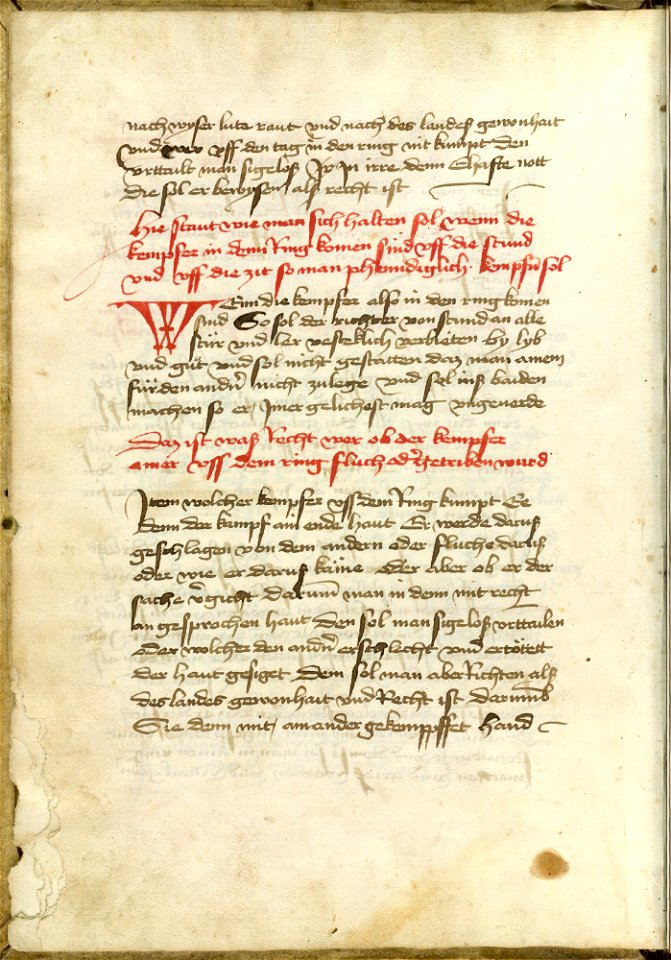 nach wyser lute raut vnd nach des landes gewonhait
vnd wer vff den tag in den ring nit kumpt den
vrttailt man sigeloß Jr Jn irre denn Ehafte nott
die sol er bewysen als recht ist
Hie staut wie man sich halten sol wenn die
kempfer in dem Ring komen sind vff die stund
vnd vff die zit so man phemdiglich kempfen sol
Wenn die kempfer also in den ring komen
sind So sol der richter von stund an alle
stür vnd ler vesteklich verbieten by lyb
vnd gůt vnd sol nicht gestatten daz man ainem
für den andn̄ nicht zulege vnd sol inß baiden
machen so er Jmer gelichest mag vngeuerde
Daz ist waß Recht wer ob der kempfer
ainer vss dem ring fluch od̄ getriben wurd
Jtem wolcher kempfer vss dem Ring kumpt Ee
denn der kampf ain ende haut Er werde daruß
geschlagen von dem andern oder fluche daruß
oder wie er daruß käme Oder aber ob er der
sache v̄gicht darum̄ man in denn mit recht
an gesprochen haut den sol man sigeloß vrttailen
oder wolcher den andn̄ erschlecht vnd ertötett
der haut gesiget dem sol man aber Richten alß
des landes gewonhait vnd Recht ist darumb
Sie denn mit ainander gekempffet hand